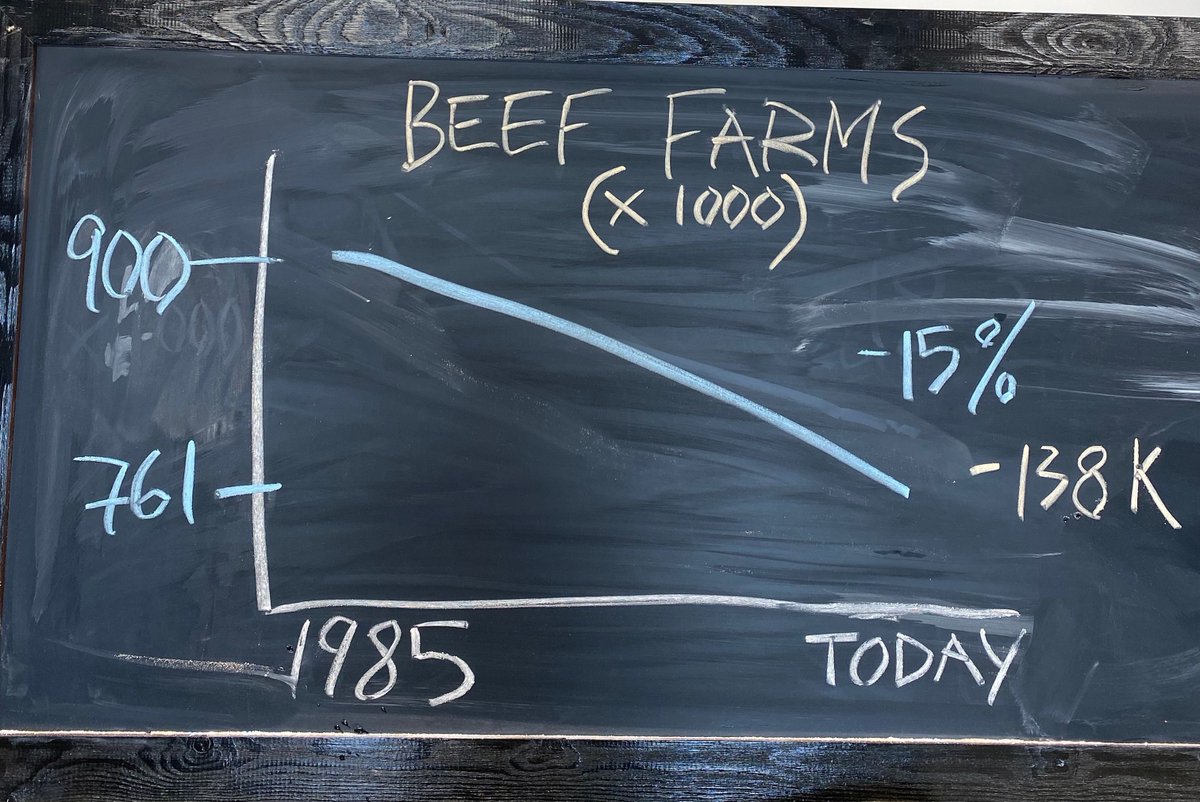 BEEF FARMS
(x 1000)
900
-15%
761
-138K
1985
TODAY